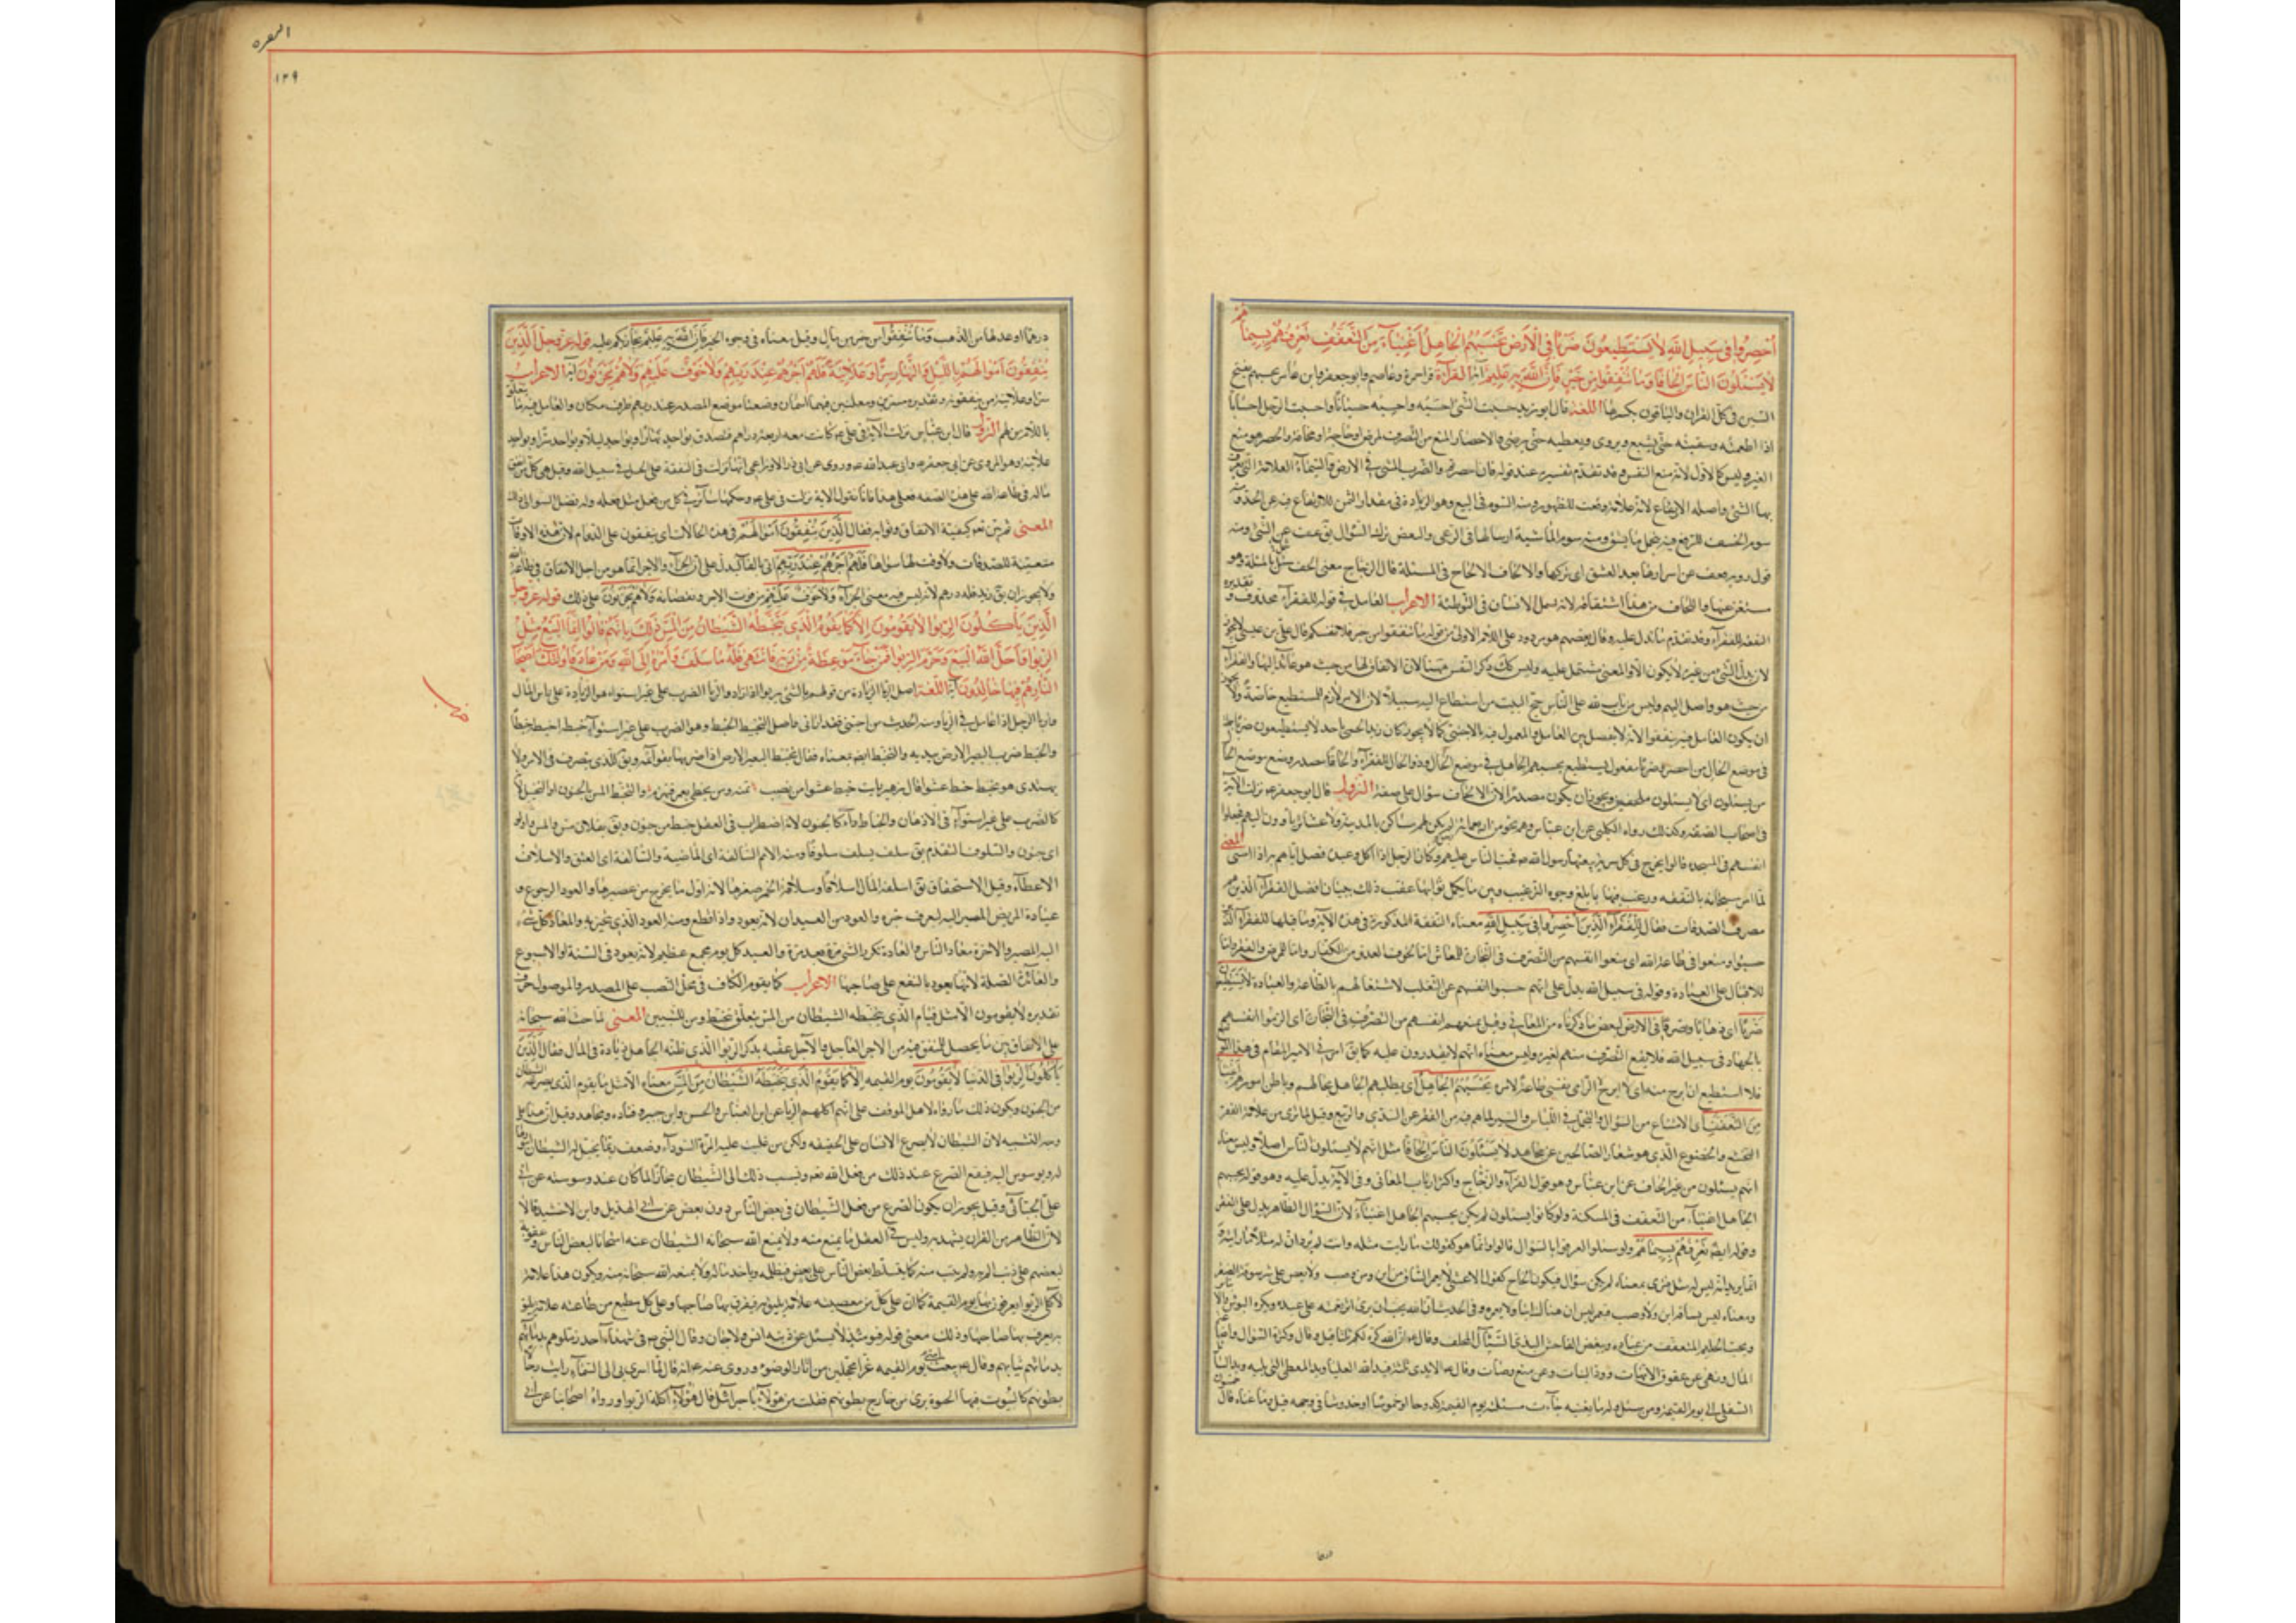 أحصروا في سبيل الله لا يستطيعون ضربا في الأرض يحسبهم الجاهل أغنياء من التعفف تعرفهم بسيماهم
لا يسئلون الناس إلحافا وما تنفقوا من خير فإن الله به عليم آية القراءة قرأ حمزة وعاصم وابو جعفر وابن عامر يحسبهم بفتح
السين في كل القران والباقون بكسرها اللغة قال ابو زيد حسبت الشئ احسبه واحسبه حسبانا واحسبت الرجل احسابا
اذا اطعمته وسقيته حتى يشبع ويروى وتعطيه حتى يرضى والاحصار المنع من التصرف لمرض او حاجة او مخافة والحصر هو منع
الغير وليس كالاول لانه منع النفس وقد تقدم تفسيره عند قوله فان احصرتم والضرب المشي في الارض والسيماء العلامة التي يعرف
بها الشئ واصله الارتفاع لانه علامة رفعت للظهور ومنه السوم في البيع وهو الزيادة في مقدار الثمن للارتفاع فيه عن الحد و
سوم الخسف للترفع فيه بتحمل ما يشق ومنه سوم الماشية ارسالها في الرعي والتعفف ترك السؤال يق عف عن الشئ ومنه
قول رؤبة فعف عن اسرارها بعد العسق اى تركها والالحاف الالحاح في المسئلة قال الزجاج معنى الحف شمل بالمسئلة وهو
مستغن عنها واللحاف من هذا اشتقاقه لانه يشمل الانسان في التغطية الاعراب العامل في قوله للفقراء محذوف وتقديره
النفقة للفقراء وقد تقدم ما يدل عليه وقال بعضهم هو مردود على اللام الاولى من قوله وما تنفقوا من خير فلانفسكم قال علي بن عيسى لا يجوز
لان بدل الشئ من غيره لا يكون الا والمعنى مشتمل عليه وليس كك ذكر النفس ههنا لان الانفاق لها من حيث هو عائد اليها وللفقراء
من حيث هو واصل اليهم وليس من باب لله على الناس حج البيت من استطاع اليه سبيلا لان الامر لازم للمستطيع خاصة ولا يجوز
ان يكون العامل فيه تنفقوا لانه لا يفصل بين العامل والمعمول فيه بالاجنبي كما لا يجوز كان زيدا الحمى تاخذ لا يستطيعون ضربا جملة
في موضع الحال من احصروا وضربا مفعول يستطيع يحسبهم الجاهل في موضع الحال وذو الحال الفقراء والحافا مصدر وضع موضع الحال
من يسئلون اى لا يسئلون ملحفين ويجوز ان يكون مصدرا لان الالحاف سؤال على صفة النزول قال ابو جعفر ع نزلت الآية
في اصحاب الصفة وكذلك رواه الكلبي عن ابن عباس وهم نحو من اربعمائة رجل لم يكن لهم مساكن بالمدينة ولا عشائر يأوون اليهم فجعلوا
انفسهم في المسجد وقالوا نخرج في كل سرية يبعثها رسول الله ص فحث الناس عليهم وكان الرجل اذا اكل وعنده فضل اتاهم به اذا امسى المعنى
لما امر سبحانه بالنفقة ورغب فيها بابلغ وجوه الترغيب وبين ما يكمل ثوابها عقب ذلك ببيان افضل الفقراء الذين هم
مصرف الصدقات فقال للفقراء الذين أحصروا في سبيل الله معناه النفقة المذكورة في هذه الآية وما قبلها للفقراء الذين
حبسوا ومنعوا في طاعة الله اى منعوا انفسهم من التصرف في التجارة للمعاش اما لخوف العدو من الكفار واما للمرض والفقر واما
للاقبال على العبادة وقوله في سبيل الله يدل على انهم حبسوا انفسهم عن التقلب لاشتغالهم بالطاعة والعبادة لا يستطيعون
ضربا اى ذهابا وتصرفا في الارض لبعض ما ذكرناه من المعاني وقيل لمنعهم انفسهم من التصرف في التجارة اى الزموا انفسهم
بالجهاد في سبيل الله فلا يقع التصرف منهم لغيره وليس معناه انهم لا يقدرون عليه كما يق امرني الامير بالمقام في هذا الموضع
فلا استطيع ان ابرح منه اى لا ابرح لالزامي نفسي طاعة لامره يحسبهم الجاهل اى يظنهم الجاهل بحالهم وباطن امورهم أغنياء
من التعفف اى الامتناع من السؤال والتجمل في اللباس والستر لما هم فيه من الفقر
التخشع والخضوع الذى هو شعار الصالحين عن مجاهد لا يسئلون الناس إلحافا مثل انهم لا يسئلون الناس اصلا وليس معناه
انهم يسئلون من غير الحاف عن ابن عباس وهو قول الفراء والزجاج واكثر ارباب المعاني وفي الآية يدل عليه وهو قوله يحسبهم
الجاهل اغنياء من التعفف في المسئلة ولو كانوا يسئلون لم يكن يحسبهم الجاهل اغنياء لان السؤال الظاهر يدل على الفقر
وقوله ايضا تعرفهم بسيماهم ولو سئلوا لعرفوا بالسؤال قالوا وانما هو كقولك ما رايت مثله وانت لم ترد ان له مثلا ما رايته و
انما تريد انه ليس له مثل فيرى فمعناه لم يكن سؤال فيكون الحاح كقول الاعشى لا يغمز الساق من اين ومن وصب ولا يعض على شرسوفه الصفر
ومعناه ليس بساقه اين ولا وصب فيغمز ليس ان هناك اينا ولا يغمزه وفي الحديث ان الله يحب ان يرى اثر نعمته على عبده ويكره البؤس والتباؤس
ويحب الحليم المتعفف من عباده ويبغض الفاحش البذى السئال الملحف وقال ع ان الله كره لكم ثلثا قيل وقال وكثرة السؤال واضاعة
المال ونهى عن عقوق الامهات ووأد البنات وعن منع وهات وقال ع الايدى ثلثة فيد الله العليا ويد المعطي التي يليه ويد السائل
السفلى الى يوم القيمة ومن سئل وله ما يغنيه جاءت مسئلته يوم القيمة كدوحا او خموشا او خدوشا في وجهه قيل وما غناه قال خمسون
درهما
البقره
١٢٩
درهما او عدلها من الذهب وما تنفقوا من خير من مال وقيل معناه في وجوه الخير فإن الله به عليم يجازيكم عليه قوله عز وجل الذين
ينفقون أموالهم بالليل والنهار سرا وعلانية فلهم أجرهم عند ربهم ولا خوف عليهم ولا هم يحزنون آية الاعراب
النزول قال ابن عباس نزلت الآية في علي ع كانت معه اربعة دراهم فتصدق بواحد نهارا وبواحد ليلا وبواحد سرا وبواحد
علانية وهو المروى عن ابي جعفر ع وابي عبد الله ع وروى عن ابي ذر والاوزاعي انها نزلت في النفقة على الخيل في سبيل الله وقيل هى في كل من انفق
ماله في طاعة الله على هذه الصفة فعلى هذا فانا نقول الآية نزلت في علي ع وحكمها سائر في كل من فعل مثل فعله وله فضل السبق الى ذلك
المعنى ثم بين تعم كيفية الانفاق وثوابه فقال الذين ينفقون أموالهم في هذه الحالات اى ينفقون على الدوام لان هذه الاوقات
متعينة للصدقات ولا وقت لها سواها فلهم أجرهم عند ربهم اتى بالفاء ليدل على ان الجزاء والاجر انما هو من اجل الانفاق في طاعة الله
ولا يجوز ان يق زيد فله درهم لانه ليس فيه معنى الجزاء ولا خوف عليهم من فوت الاجر ونقصانه ولا هم يحزنون على ذلك قوله عز وجل
الذين يأكلون الربوا لا يقومون إلا كما يقوم الذى يتخبطه الشيطان من المس ذلك بأنهم قالوا إنما البيع مثل
الربوا وأحل الله البيع وحرم الربوا فمن جاءه موعظة من ربه فانتهى فله ما سلف وأمره إلى الله ومن عاد فأولئك أصحاب
النار هم فيها خالدون آية اللغة اصل الربا الزيادة من قولهم ربا الشئ يربو اذا زاد
واربا الرجل اذا عامل في الربا ومنه الحديث من اجبى فقد اربى واصل التخبط الخبط وهو الضرب على غير استواء خبطته اخبطه خبطا
والخبط ضرب البعير الارض بيديه والتخبط ايضا بمعناه يقال تخبط البعير الارض اذا ضربها بقوائمه ويق للذى يتصرف في الامر ولا
يهتدى هو يخبط خبط عشواء قال زهير رايت المنايا خبط عشواء من تصب تمته ومن تخطئ يعمر فيهرم والتخبط المس بالجنون او التخبيل لانه
كالضرب على غير استواء في الاذهان والخباط داء كالجنون لانه اضطراب في العقل
اى جنون والسلوف التقدم يق سلف يسلف سلوفا ومنه الامم السالفة اى الماضية والسالفة اعلى العنق والاسلاف
الاعطاء وقيل الاستحقاق يق اسلفته المال اسلافا وسلافة الخمر صفوها لانه اول ما يخرج من عصيرها والعود الرجوع و
عيادة المريض المصير اليه لتعرف خبره والعود من العيدان لانه يعود واذا قطع ومنه العود الذى يتبخر به والمعاد كل شئ
اليه المصير والاخرة معاد الناس والعادة تكرر الشئ مرة بعد مرة والعيد كل يوم مجمع عظيم لانه يعود في السنة او الاسبوع
والعائدة الصلة لانها تعود بالنفع على صاحبها الاعراب كما يقوم الكاف في محل النصب على المصدر والموصول حرف
تقديره لا يقومون الا مثل قيام الذى يتخبطه الشيطان من المس يتعلق بتخبط ومن للتبيين المعنى لما حث الله سبحانه
على الانفاق وبين ما يحصل للمنفق من الاجر العاجل والآجل عقبه بذكر الربوا الذى ظنه الجاهل زيادة في المال فقال الذين
يأكلون الربوا في الدنيا لا يقومون يوم القيمة إلا كما يقوم الذى يتخبطه الشيطان من المس معناه الا مثل ما يقوم الذى يصرعه الشيطان
من الجنون ويكون ذلك امارة لاهل الموقف على انهم اكلة الربا عن ابن عباس والحسن وابن جبير وقتادة ومجاهد وقيل ان هذا على
وجه التشبيه لان الشيطان لا يصرع الانسان على الحقيقة ولكن من غلب عليه المرة السوداء وضعف ربما يخيل له الشيطان امورا
له ويوسوس اليه فيقع الصرع عند ذلك من فعل الله تعم ونسب ذلك الى الشيطان مجازا لما كان عند وسوسته عن ابي
علي الجبائي وقيل يجوز ان يكون الصرع من فعل الشيطان في بعض الناس دون بعض عن ابي الهذيل وابن الاخشيد قالا
لان الظاهر من القران يشهد به وليس في العقل ما يمنع منه ولا يمنع الله سبحانه الشيطان عنه امتحانا لبعض الناس وعقوبة
لبعضهم على ذنب الم به ولم يتب منه كما يتسلط بعض الناس على بعض فيظلمه وياخذ ماله ولا يمنعه الله سبحانه منه ويكون هذا علامة
لآكلي الربوا يعرفون بها يوم القيمة كما ان على كل من معصيته علامة تليق به فيعرف بها صاحبها وعلى كل مطيع من طاعته علامة تليق
به يعرف بها صاحبها وذلك معنى قوله فيومئذ لا يسئل عن ذنبه انس ولا جان وقال النبي ص في شهداء احد زملوهم بدمائهم
وثيابهم وقال ع يبعث امتي يوم القيمة غرا محجلين من آثار الوضوء وروى عنه ع انه قال لما اسرى بي الى السماء رايت رجالا
بطونهم كالبيوت فيها الحيات يرى من خارج بطونهم فقلت من هؤلاء يا جبرائيل قال هؤلاء اكلة الربوا وروى اصحابنا عن ابي